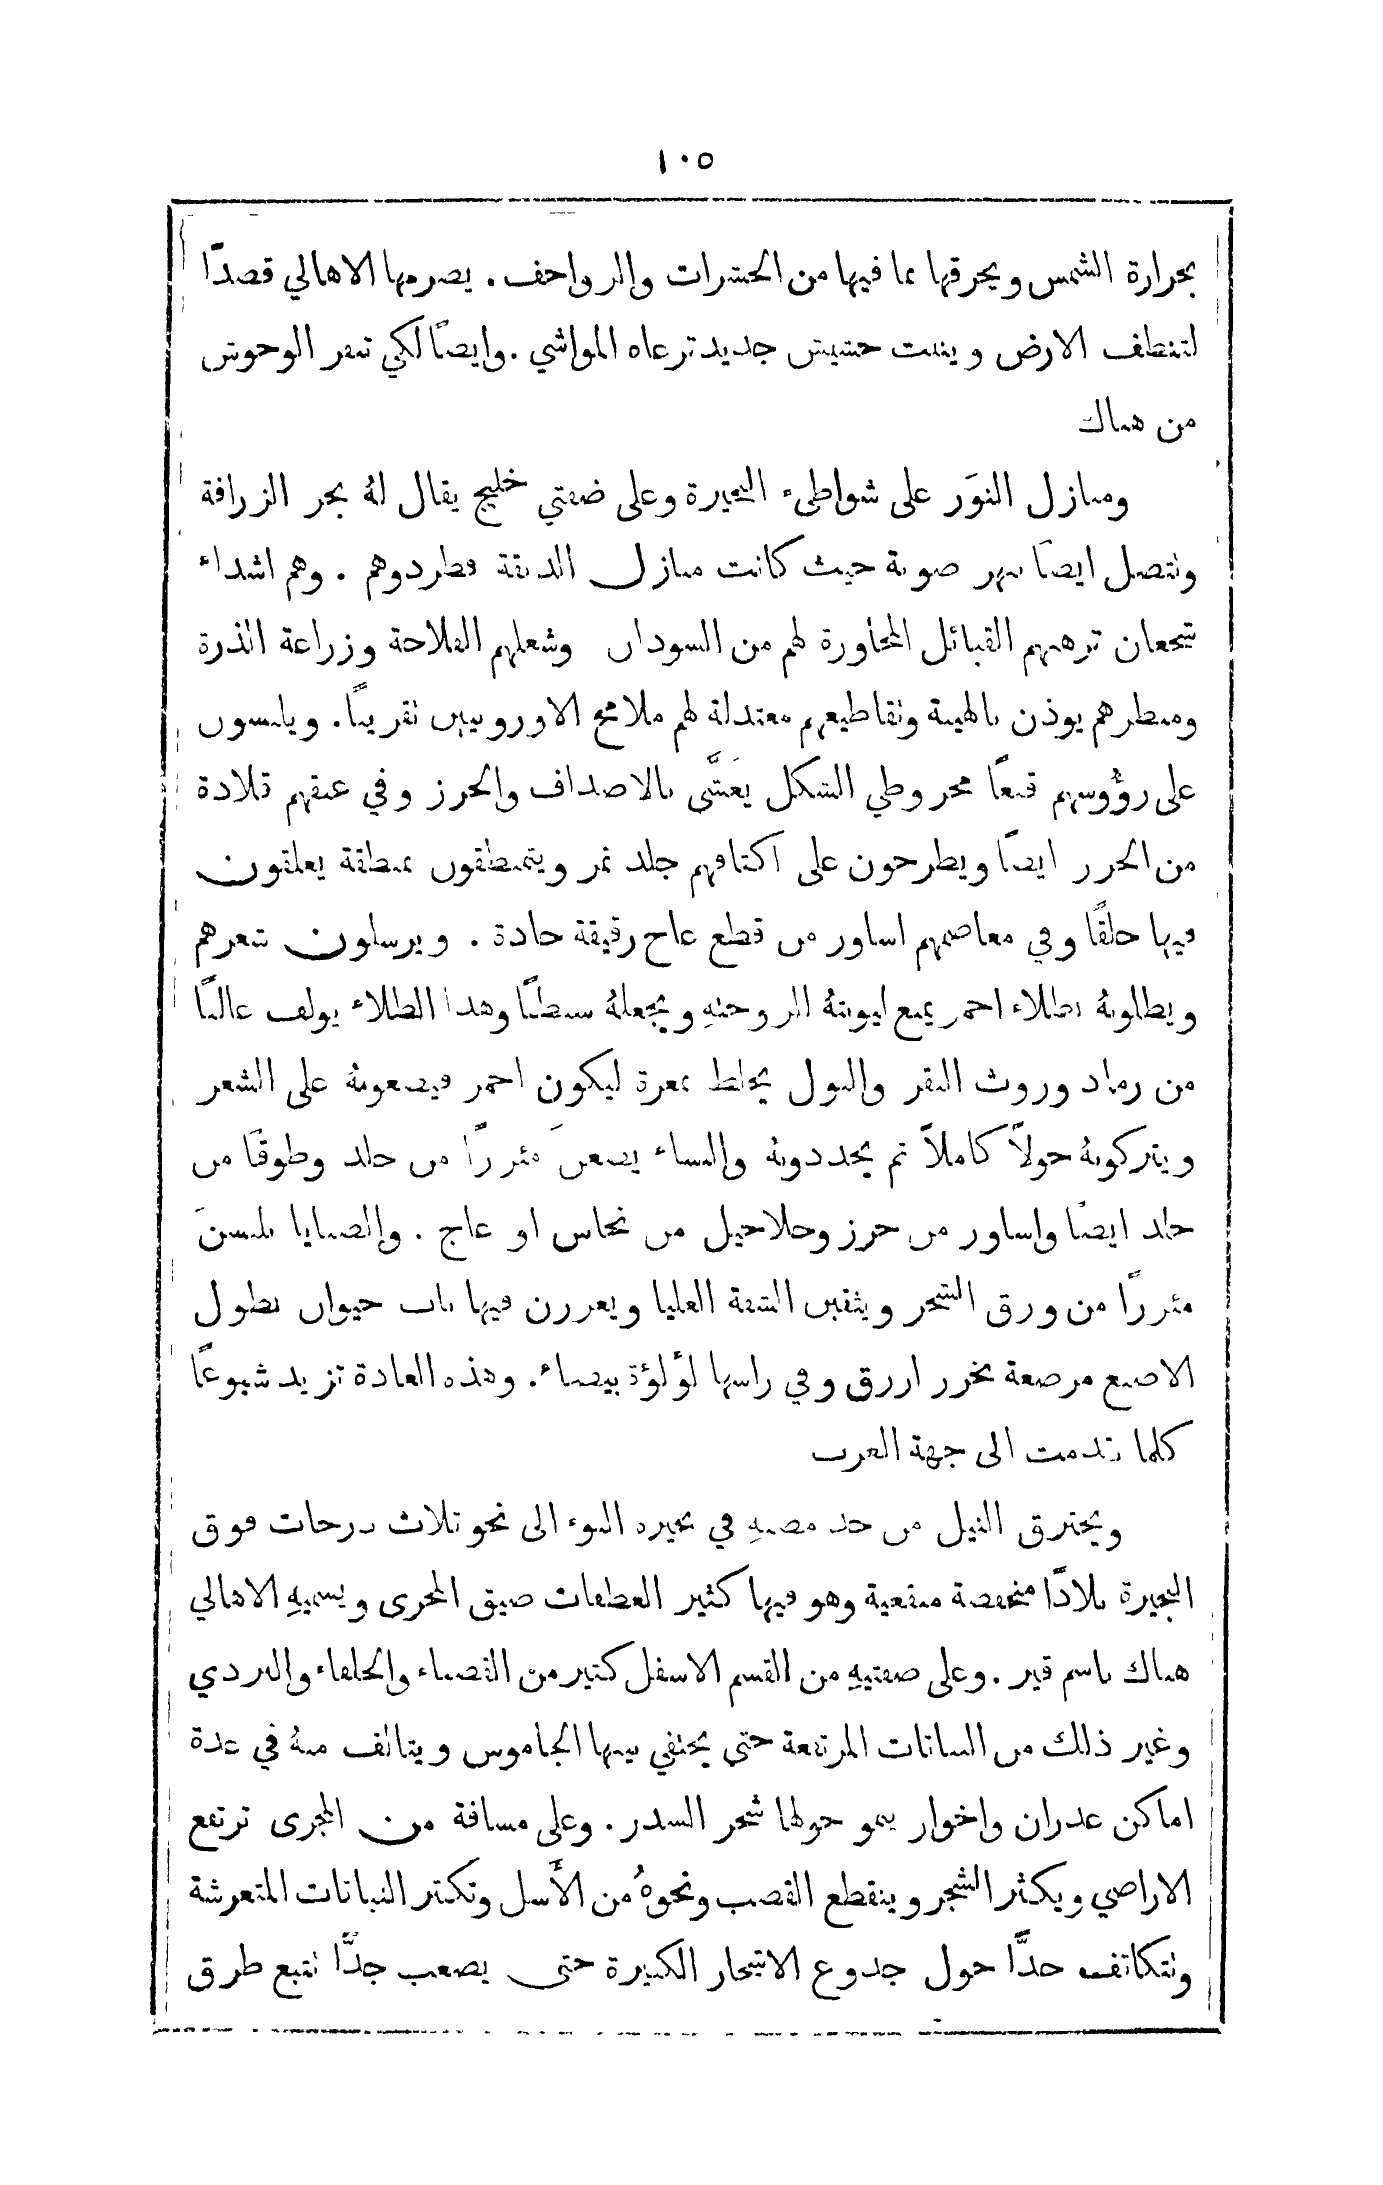 ١٠٥
بحرارة الشمس ويحرقها بما فيها من الحشرات والزواحف. يضرمها الاهالي قصدًا
لتنظف الارض وينبت حشيش جديد ترعاه المواشي. وايضًا لكي تنفر الوحوش
من هناك
ومنازل النوَر على شواطىء البحيرة وعلى ضفتي خليج يقال لهُ بحر الزرافة
ونتصل ايضًا بنهر صوبة حيث كانت منازل الدنقة فطردوهم. وهم اشداء
شجعان ترهبهم القبائل المجاورة لهم من السودان وشغلهم الفلاحة وزراعة الذرة
ومنظرهم يوذن بالهيبة ونقاطيعهم معتدلة لهم ملامح الاوروبيين نقريبًا. ويلبسون
على رؤُوسهم قبعًا مخروطي الشكل يغشَّى بالاصداف والخرز وفي عنقهم قلادة
من الخرز ايضًا ويطرحون على اكتافهم جلد نمر ويتمنطقون بمنطقة يعلقون
فيها حلقًا وفي معاصمهم اساور من قطع عاج رقيقة حادة. ويرسلون شعرهم
ويطلونهُ بطلاء احمر يمنع ليونتهُ اللزوجتهِ ويجعلهُ سبطًا وهذا الطلاء يولف غالبًا
من رماد وروث البقر والبول يخلط بمغرة ليكون احمر فيضعونهُ على الشعر
ويتركونهُ حولاً كاملاً ثم يجددونهُ والنساء يضعنَ مئزرًا من جلد وطوقًا من
جلد ايضًا واساور من خرز وخلاخيل من نحاس او عاج. والصبايا يلبسنَ
مئزرًا من ورق الشجر ويثقبن الشفة العليا ويغرزن فيها ناب حيوان بطول
الاصبع مرصعة بخرز ازرق وفي راسها لؤْلؤة بيضاء. وهذه العادة تزيد شيوعًا
كلما تقدمت الى جهة الغرب
ويخترق النيل من حد مصبهِ في بحيرة النوء الى نحو ثلاث درجات فوق
البحيرة بلادًا منخفضة منقعية وهو فيها كثير العطفات ضيق المجرى ويسميهِ الاهالي
هناك باسم قير. وعلى ضفتيهِ من القسم الاسفل كثير من القصباء والحلفاء والبردي
وغير ذلك من النباتات المرتفعة حتى يختفي بينها الجاموس ويتالف منهُ في عدة
اماكن غدران واخوار ينمو حولها شجر السدر. وعلى مسافة من المجرى ترتفع
الاراضي ويكثر الشجر وينقطع القصب ونحوهُ من الأَسل وتكثر النباتات المتعرشة
ونتكاثف جدًّا حول جذوع الاشجار الكبيرة حتى يصعب جدًّا نتبع طرق